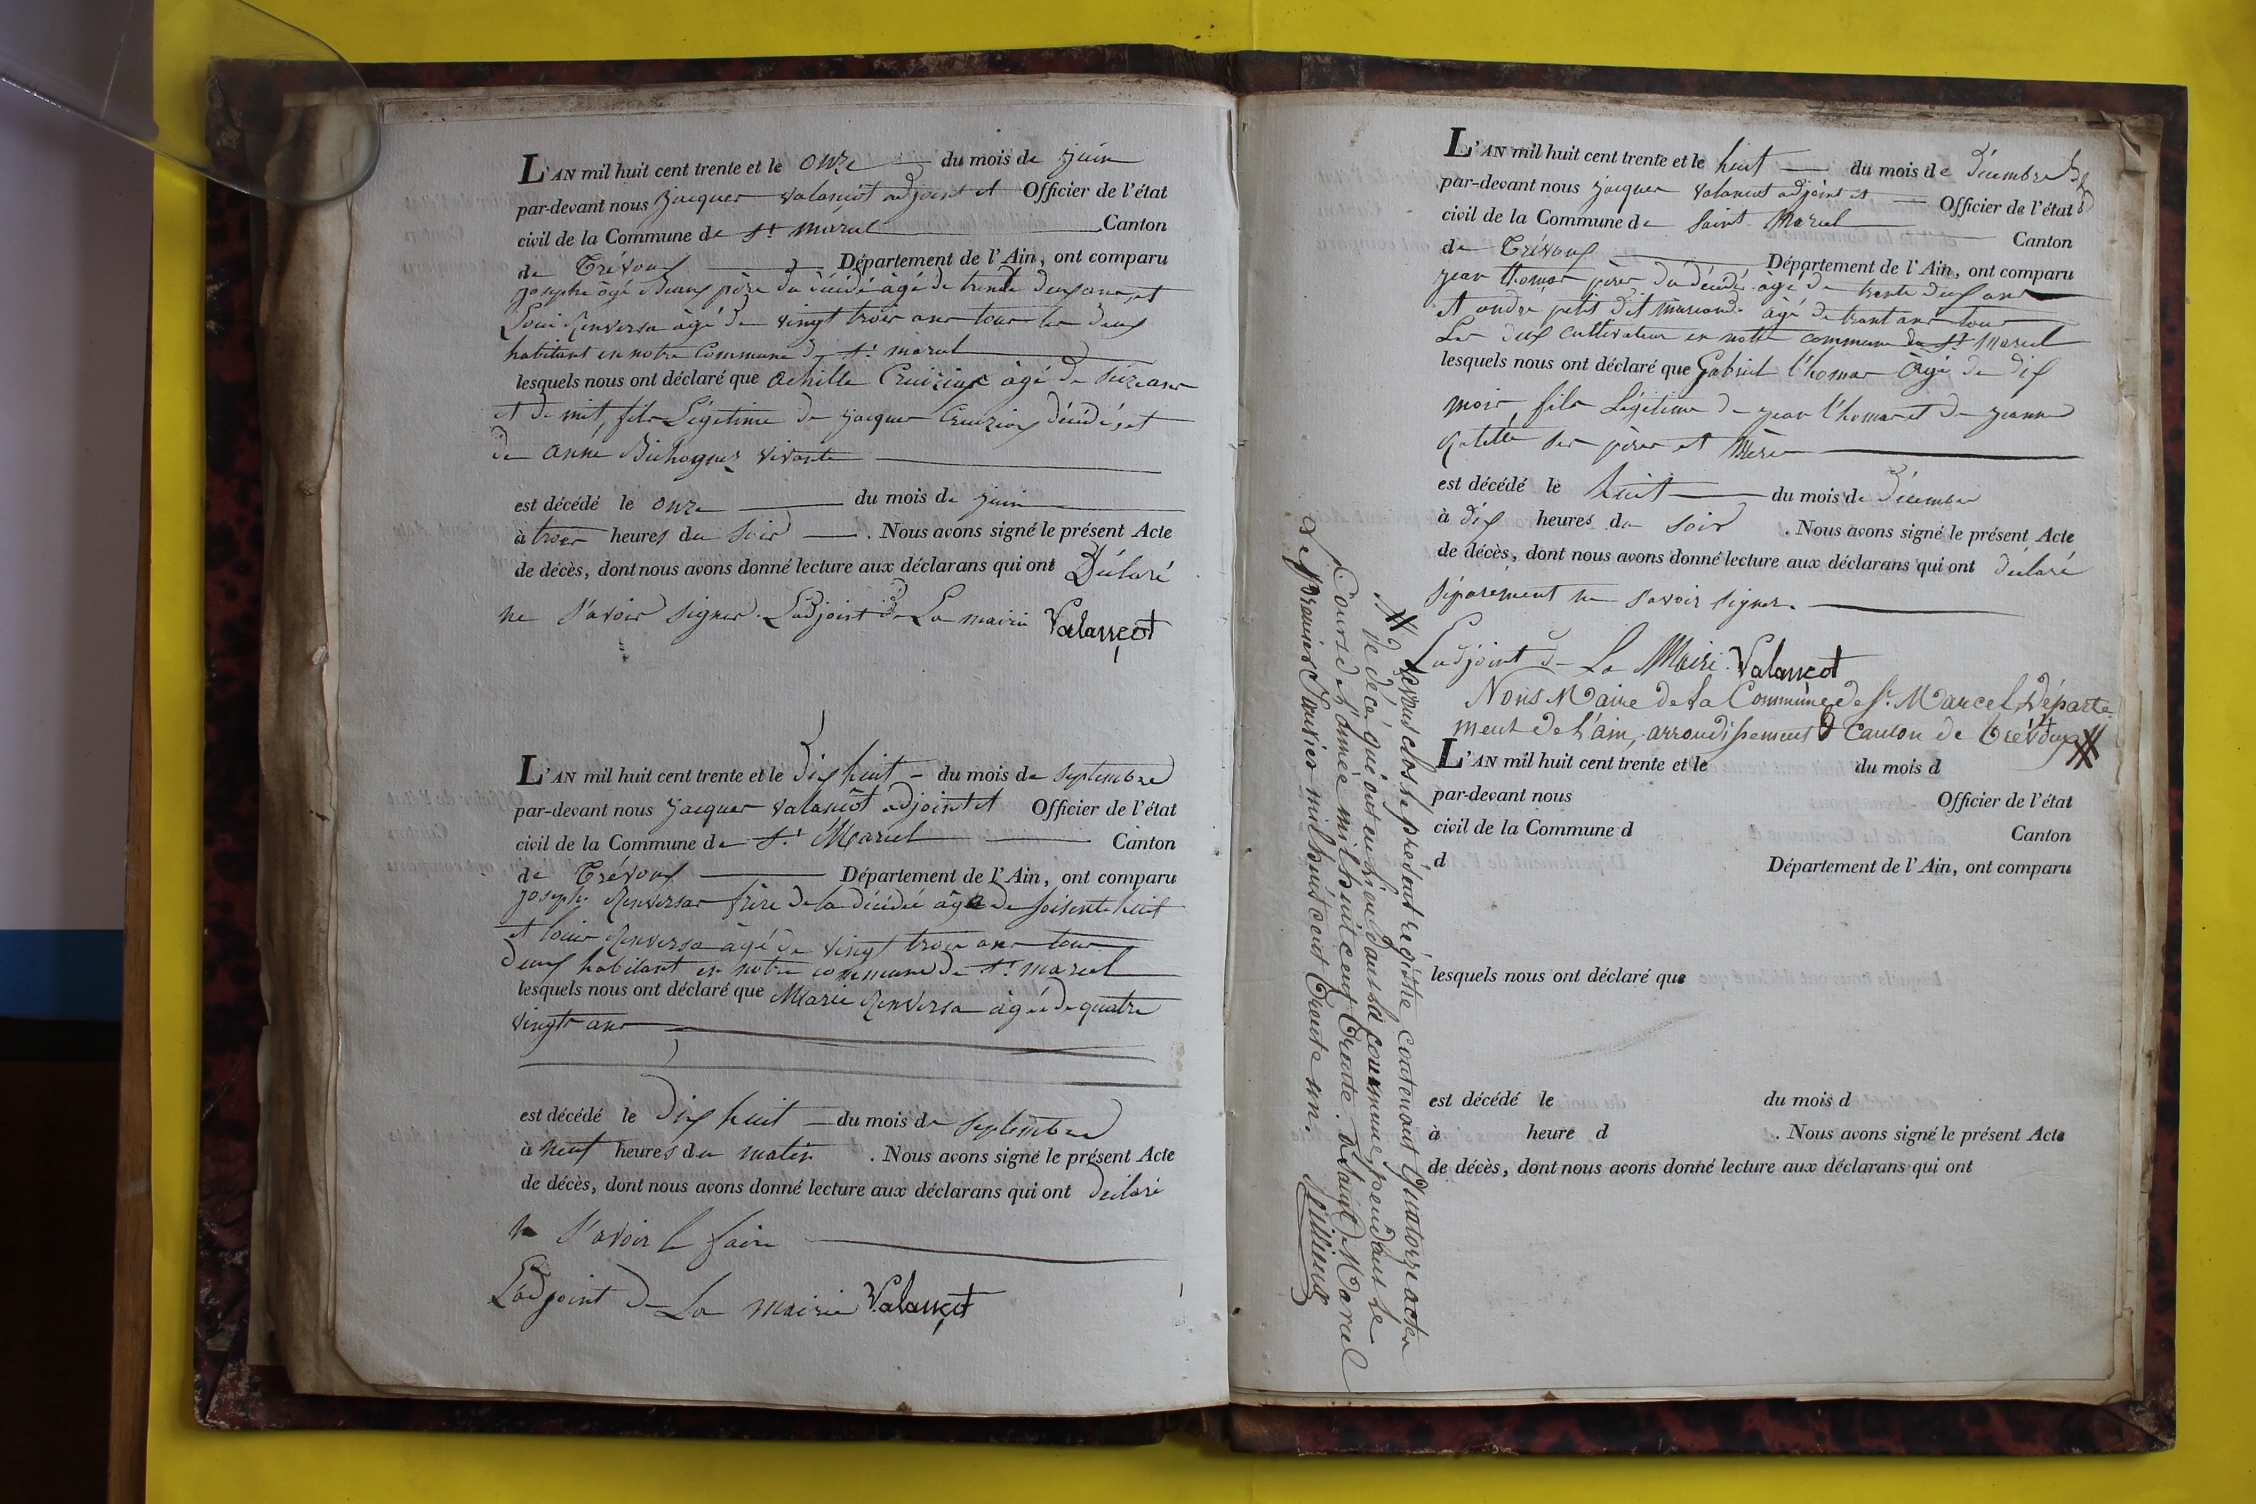 L'AN mil huit cent trente et le onze du mois de juin
par-devant nous jacques valançot adjoint et Officier de l'état
civil de la Commune de St marcel Canton
de Trévoux Département de l'Ain, ont comparu
joseph âgé père du décédé âgé de trente deux ans, et
Loui Renversa âgé de vingt trois ans tous les deux
habitant en notre Commune de St marcel
lesquels nous ont déclaré que achille Cruizioux âgé de seize ans
et de mit, fils Légetime de jacques Cruizioux décédé, et
de anne vivante
est décédé le onze du mois de juin
à trois heures du soir . Nous avons signé le présent Acte
de décès, dont nous avons donné lecture aux déclarans qui ont Déclaré
ne s'avoir signer. L'adjoint de La mairie Valançot
L'AN mil huit cent trente et le dix huit du mois de septembre
par-devant nous jacques valançot adjoint et Officier de l'état
civil de la Commune de St Marcel Canton
de Trévoux Département de l'Ain, ont comparu
joseph Renversa frère de la décédée âgé de soisente huit
et louis Renversa âgé de vingt trois ans tous
deux habitant en notre commune de St marcel
lesquels nous ont déclaré que Marie Renversa âgée de quatre
vingts ans
est décédé le dix huit du mois de septembre
à neuf heures du matin . Nous avons signé le présent Acte
de décès, dont nous avons donné lecture aux déclarans qui ont déclaré
ne s'avoir le faire
L'adjoint de La mairie Valançot
L'AN mil huit cent trente et le huit du mois de décembre
par-devant nous jacques valançot adjoint et Officier de l'état
civil de la Commune de Saint Marcel Canton
de Trévoux Département de l'Ain, ont comparu
jean thomas père du décédé âgé de trente dix ans
et andre petit dit âgé de trant ans tous
Les deux cultivateur en notre commune de St Marcel
lesquels nous ont déclaré que Gabriel thomas âgé de dix
mois, fils Légitime de jean thomas et de jeanne
ses père et Mère
est décédé le huit du mois de décembre
à dix heures du soir . Nous avons signé le présent Acte
de décès, dont nous avons donné lecture aux déclarans qui ont déclaré
séparément ne s'avoir signer.
L'adjoint de La Mairie Valançot
Nous Maire de la Commune de St. Marcel, Départe-
ment de l'ain, arrondissement & Canton de Trévoux
L'AN mil huit cent trente et le du mois d
par-devant nous Officier de l'état
civil de la Commune d Canton
d Département de l'Ain, ont comparu
lesquels nous ont déclaré que
est décédé le du mois d
à heure d . Nous avons signé le présent Acte
de décès, dont nous avons donné lecture aux déclarans qui ont
avons clos le présent régistre contenant quatorze actes
de décé, qui ont eu lieu dans la commune pendant le
Cours de l'année mil huit cent Trente. à Saint Marcel
le premier Janvier mil huit cent Trente un.